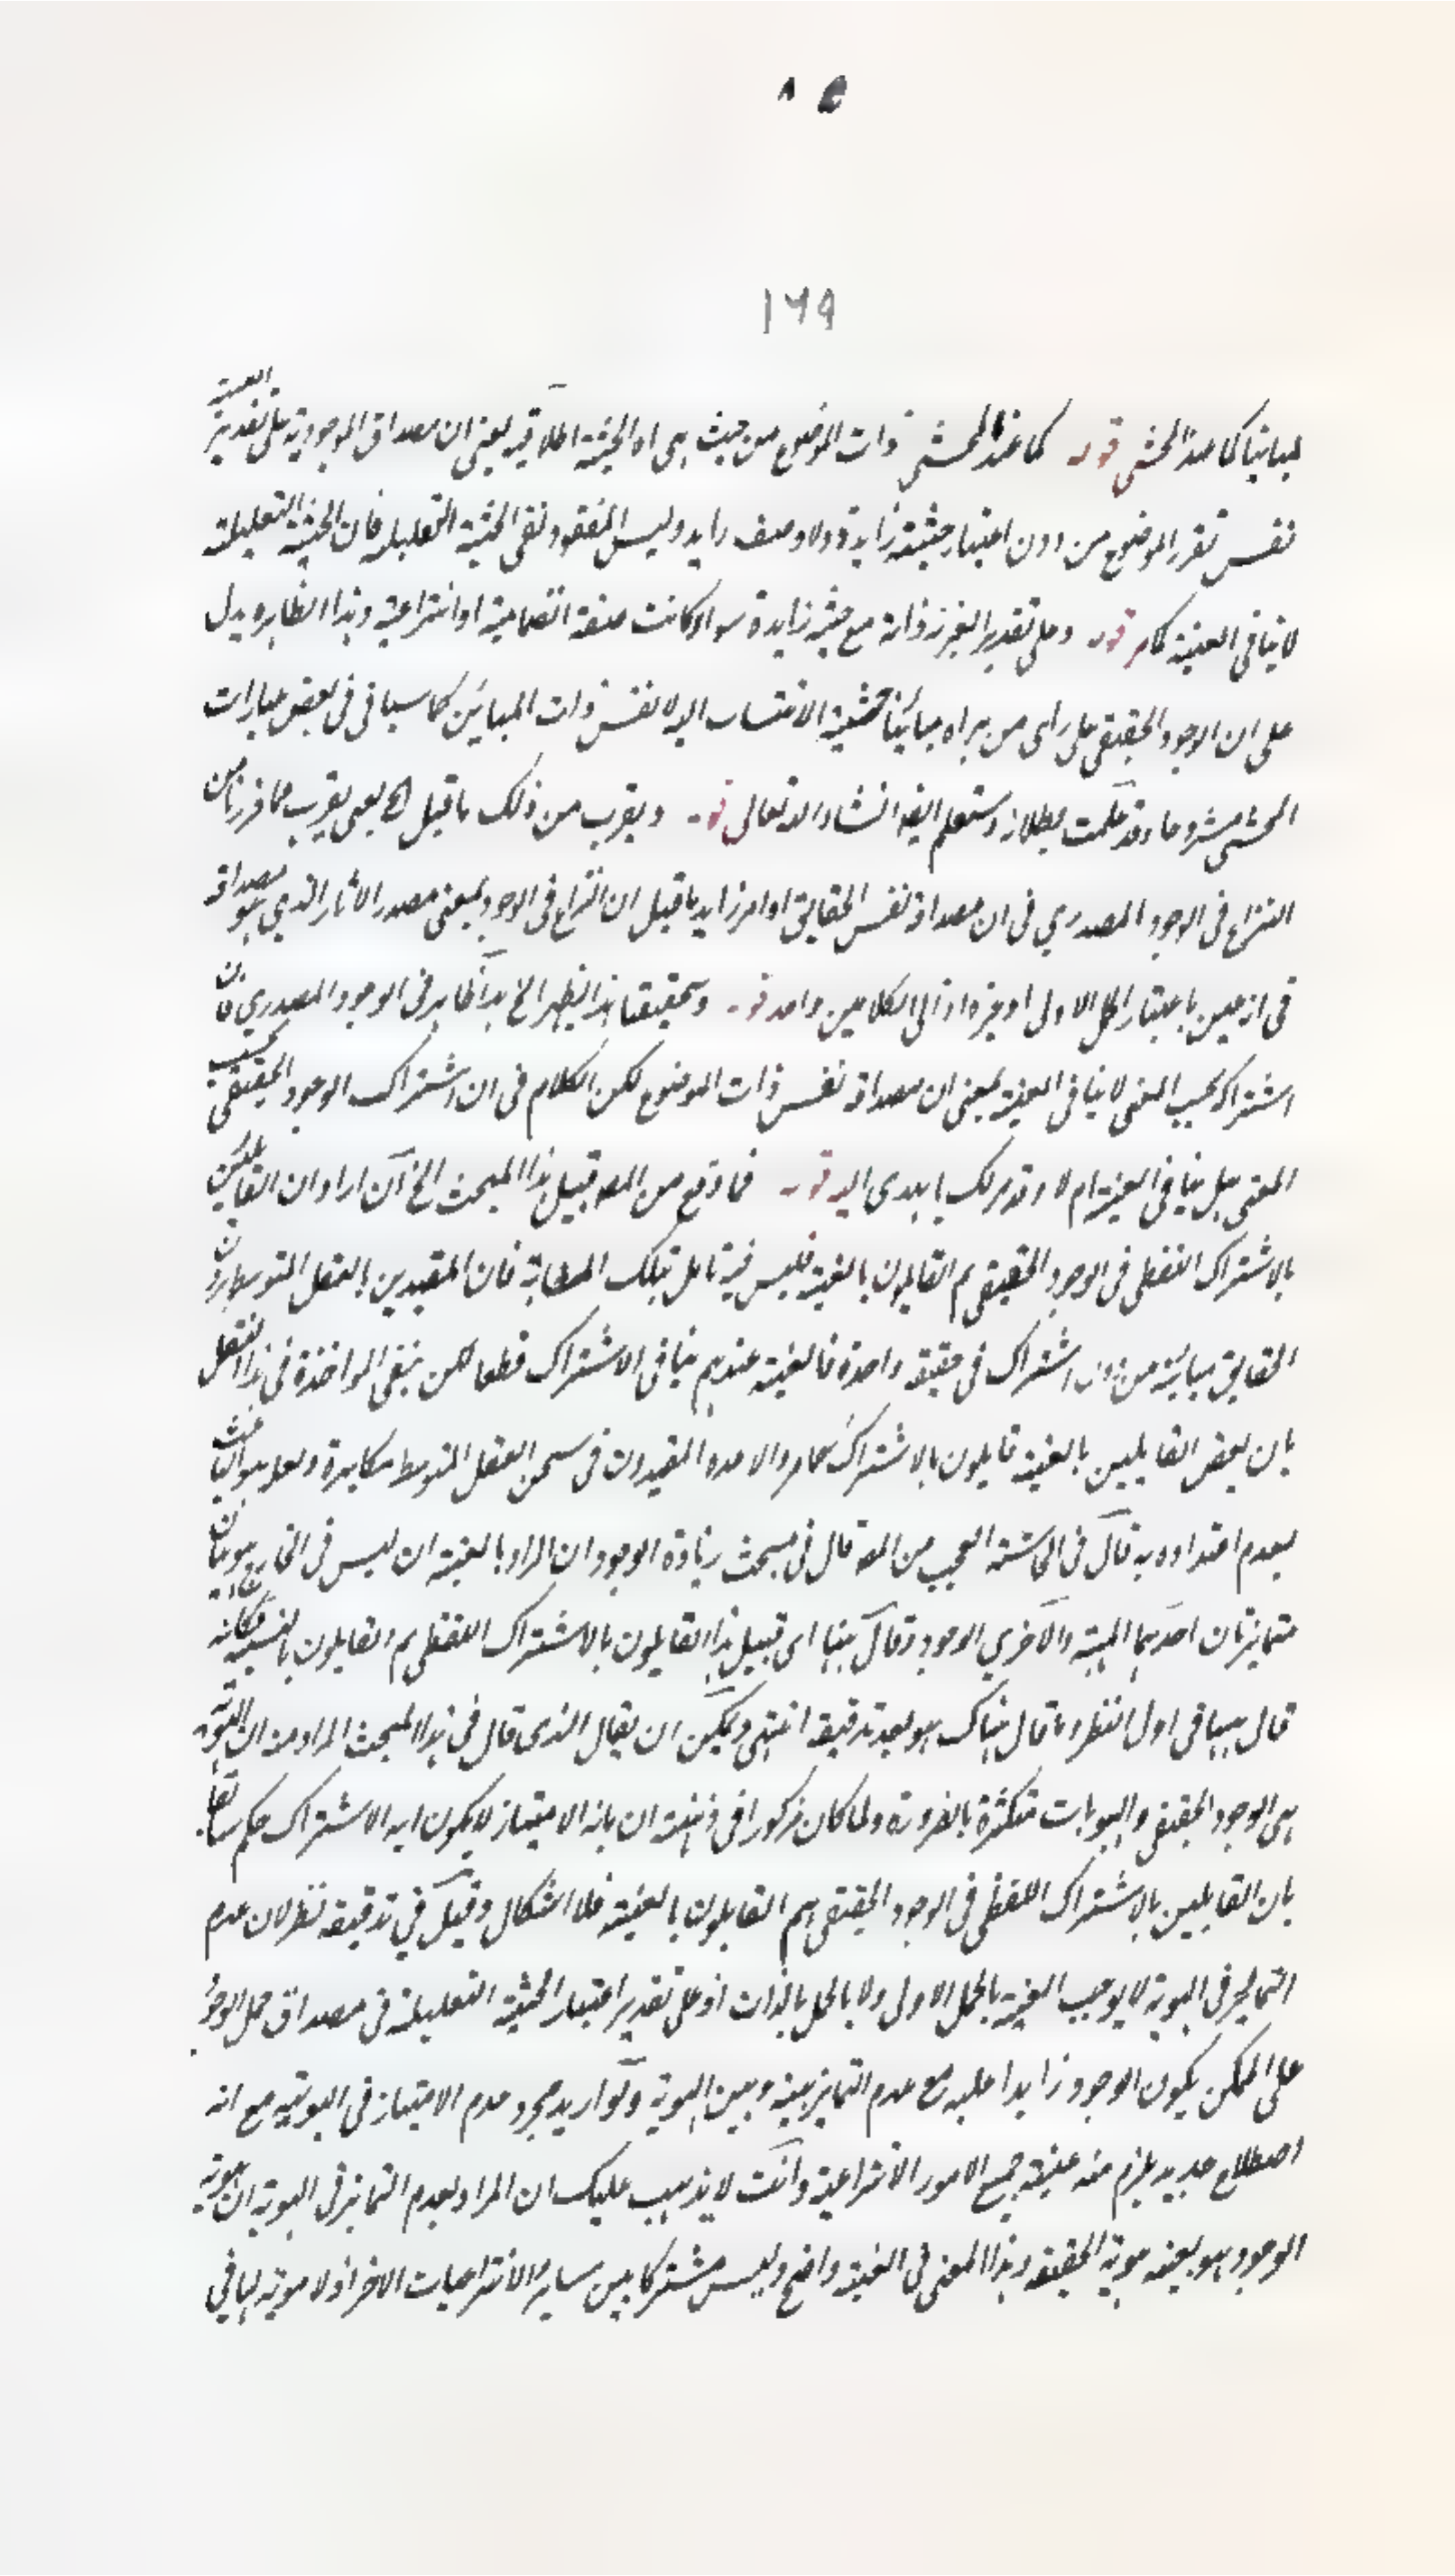 ۸۵
۱۶۹
مباینا كما عند المحشى قوله كما عند المحشى ذات الموضوع من حيث هى اه الحيثية اطلاقية يعنى ان مصداق الموجودية على تقدير العينية
نفس تقرر الموضوع من دون اعتبار حيثية زايدة ولا وصف زايد وليس المقصود نفى الحيثية التعليلية فان الحيثية التعليلية
لا ينافى العينية كما مر قوله وعلى تقدير الغير ذاته مع حيثية زايدة سواء كانت صفة انضمامية او انتزاعية وهذا الظاهره يدل
على ان الوجود الحقيقى على راى من يراه مباينا حيثية الانتساب اليه لا نفس ذات المباين كما سياتى فى بعض عبارات
المحشى مشروحا وقد علمت بطلانه وستعلم ايضا انشاء الله تعالى قوله ويقرب من ذلك ما قيل الخ يعنى يقرب مما قررنا من
النزاع فى الوجود المصدري فى ان مصداقه نفس الحقايق او امر زايد ما قيل ان النزاع فى الوجود بمعنى مصدر الاثار الذي هو مصداقه
فى انه عين باعتبار الحمل الاول او غيره اذ مآل الكلامين واحد قوله وتحقيقنا هذا يظهر الخ هذا ظاهر فى الوجود المصدري فان
اشتراكه بحسب المعنى لا ينافى العينية بمعنى ان مصداقه نفس ذات الموضوع لكن الكلام فى ان اشتراك الوجود الحقيقى بحسب
المعنى هل ينافى العينية ام لا وقد مر لك ما يهدى اليه قوله فما وقع من المص قبيل هذا المبحث الخ ان اراد ان القايلين
بالاشتراك اللفظى فى الوجود الحقيقى هم القايلون بالعينية فليس فيه تامل بتلك المثابة فان المقيدين بالعقل المتوسط يرون
الحقايق مباينة من دون اشتراك فى حقيقة واحدة فالعينية عندهم ينافى الاشتراك قطعا لكن ينبغى المواخذة فى هذا النقل
بان بعض القايلين بالعينية قايلون بالاشتراك كما مر والا مده المقيدون فى سجن العقل المتوسط مكابرة ولعل هو الباعث
لعدم اعتداده به قال فى الحاشية العجب من المص قال فى مبحث زيادة الوجود ان المراد بالعينية ان ليس فى الخارج هويتان
متمايزتان احدهما المهية والاخرى الوجود وقال هنا اى قبيل هذا القايلون بالاشتراك اللفظى هم القايلون بالعينية فكانه
قال ههنا فى اول النظر وما قال هناك هو بعد تدقيقه انتهى ويمكن ان يقال الذى قال فى هذا المبحث المراد منه ان الهوية
هى الوجود الحقيقى والهويات متكثرة بالضرورة ولما كان مركوزا فى ذهنه ان ما به الامتياز لا يكون ما به الاشتراك حكم سابقا
بان القايلين بالاشتراك اللفظى فى الوجود الحقيقى هم القايلون بالعينية فلا اشكال وقيل فى تدقيقه نظر لان عدم
التمايز فى الهوية لا يوجب العينية بالحمل الاول ولا بالحمل بالذات اذ على تقدير اعتبار الحيثية التعليلية فى مصداق حمل الوجود
على الممكن يكون الوجود زايدا عليه مع عدم التمايز بينه وبين الهوية ولو اريد مجرد عدم الامتياز فى الهوية مع انه
اصطلاح جديد يلزم منه عينية جميع الامور الانتزاعية وانت لا يذهب عليك ان المراد بعدم التمايز فى الهوية ان هوية
الوجود هو بعينه هوية الحقيقة وهذا المعنى فى العينية واضح وليس مشتركا بين ساير الانتزاعيات الاخر اذ لا هوية لها فى